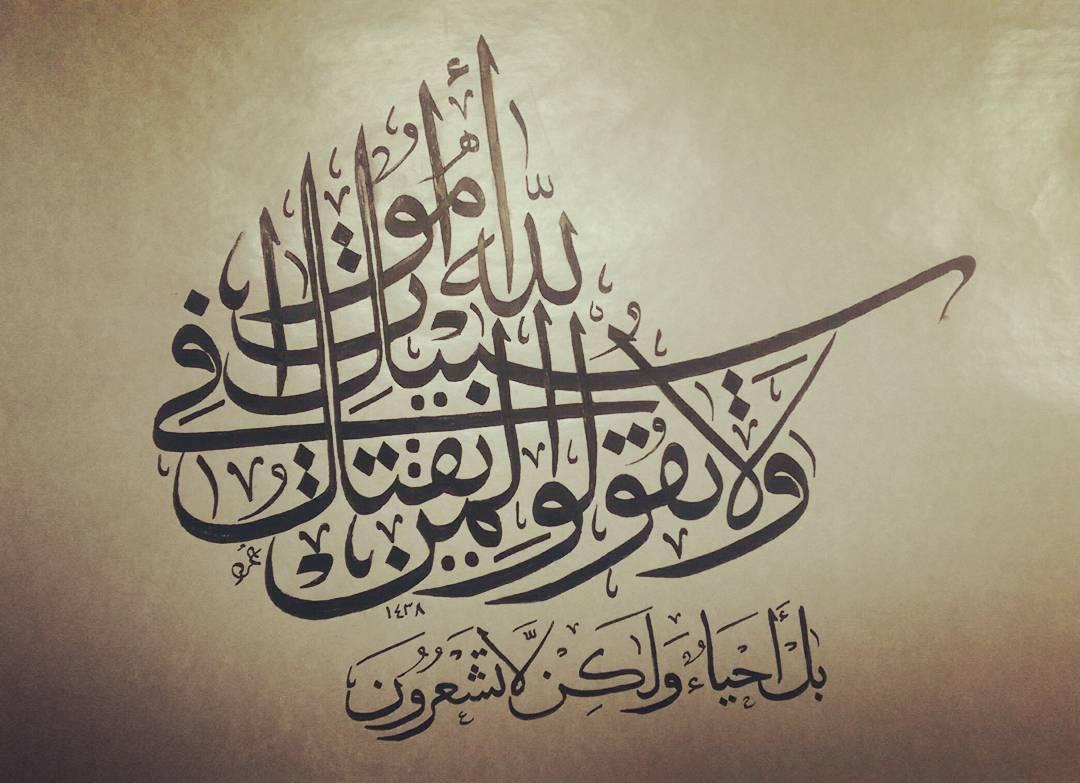 ولا تقولوا لمن يقتل في سبيل الله أموات
١٤٣٨
بَلْ أَحْيَاءٌ وَلَكِنْ لَّا تَشْعُرُونَ